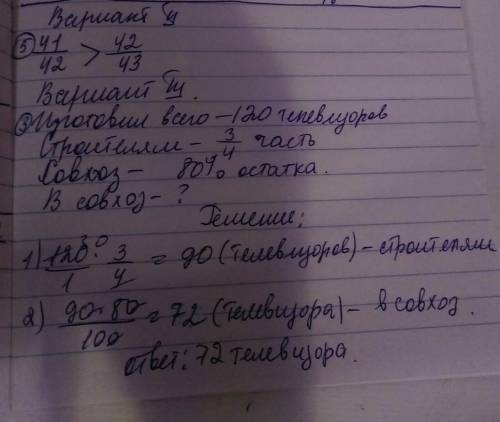 Вариант II
⑤ 41/42 > 42/43
Вариант III.
③ Изготовили всего – 120 телевизоров
Строителям – 3/4 часть
Совхоз – 80% остатка.
В совхоз – ?
Решение:
1) 120/1 · 3/4 = 90 (телевизоров) – строителям
2) 90·80/100 = 72 (телевизора) – в совхоз.
ответ: 72 телевизора.